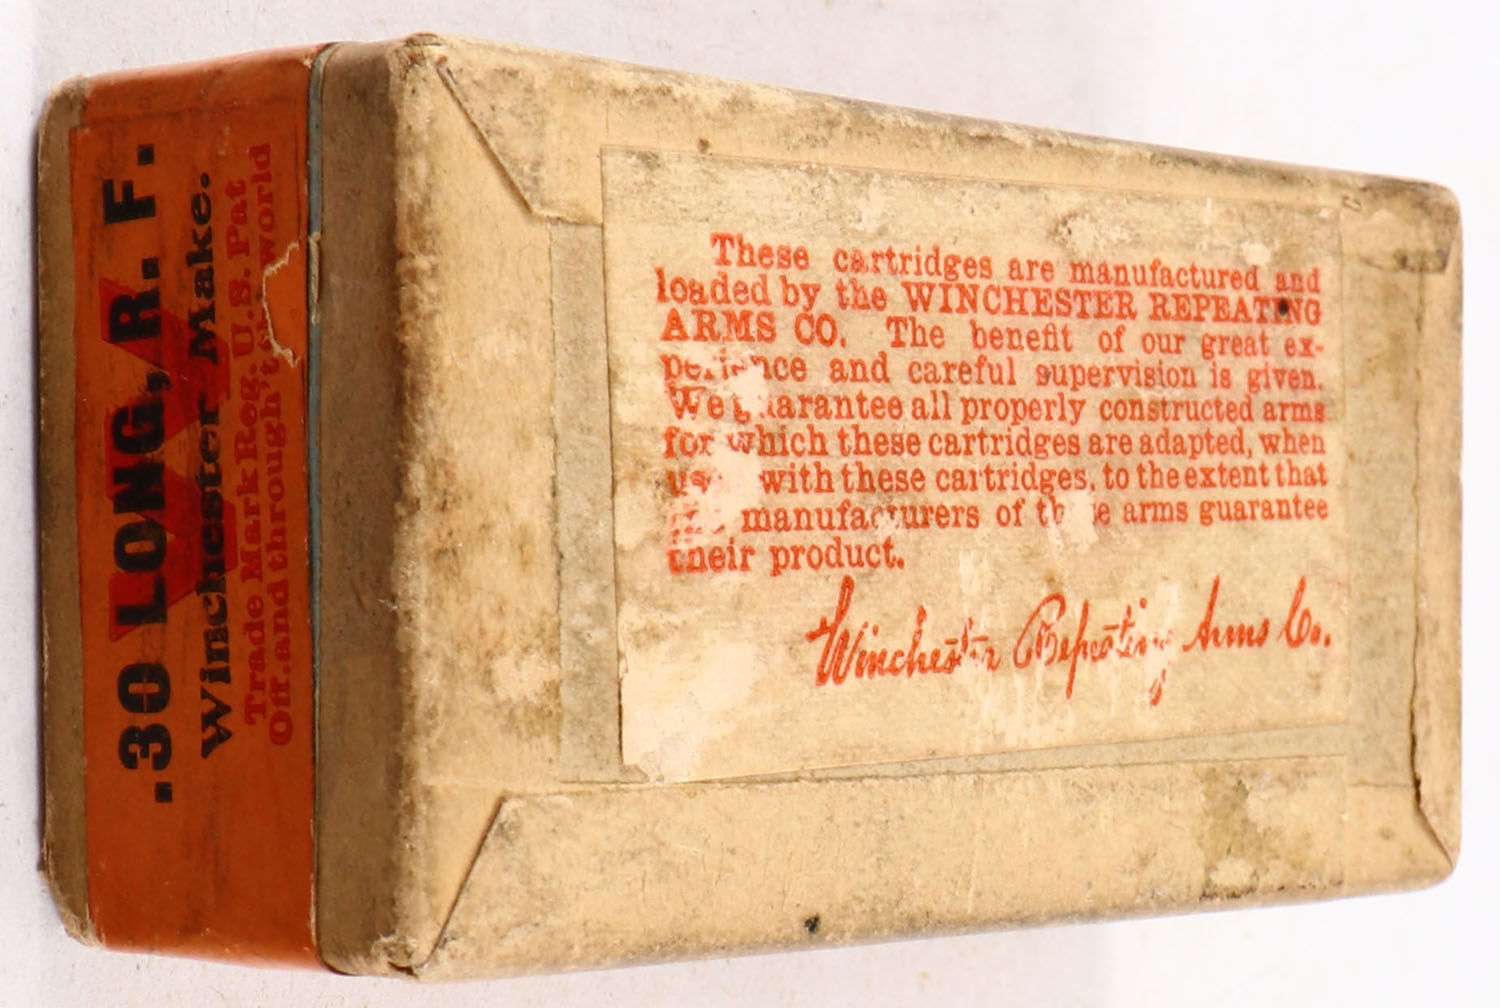 .30 LONG, R. F.
Winchester Make.
Trade Mark Reg. U.S. Pat
Off. and throughout the world
These cartridges are manufactured and
loaded by the WINCHESTER REPEATING
ARMS CO. The benefit of our great ex-
perience and careful supervision is given.
We guarantee all properly constructed arms
for which these cartridges are adapted, when
used with these cartridges, to the extent that
manufacturers of these arms guarantee
their product.
Winchester Repeating Arms Co.